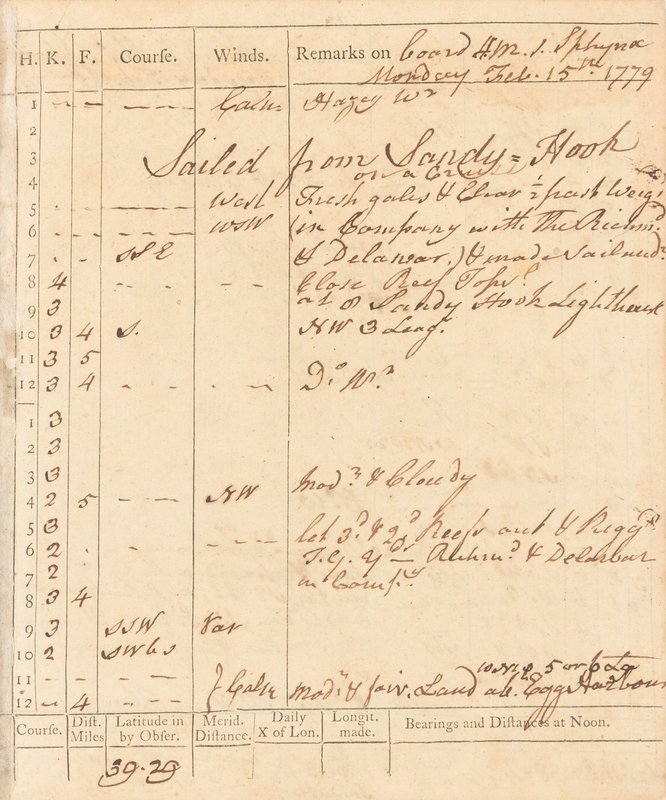 H. K. F. Course. Winds. Remarks on board H.M.S. Sphynx
Monday Feb. 15th 1779
1 - - --- Calm Hazey Wr
2
3 Sailed from Sandy=Hook
4 on a Cruise
5 - --- West Fresh gales & Clear ½ past Weigd
6 - - --- WSW (in Company with The Richmd
7 - - SSE & Delawar,) & made sail undr
8 4 - - - - Close Reeft Tops
9 3 at 8 Sandy Hook Lighthouse
10 3 4 S. NW 3 Leags
11 3 5
12 3 4 - - - - - - Do Wr
1 3
2 3
3 3 Modr & Cloudy
4 2 5 - -- NW
5 3 - --- let 3d & 2d Reefs out & Rigg
6 2 - T.G. Yds — Richmd & Delawar
7 2 in Compy
8 3 4
9 3 SSW Var
10 2 SWbS
11 - - - - - WNW 5 or 6 Lg
12 - 4 - - - } Calm Modr & fair, Land ab. Egg Harbour
Course. Dist. Miles Latitude in by Obser. Merid. Distance. Daily X of Lon. Longit. made. Bearings and Distances at Noon.
39.29